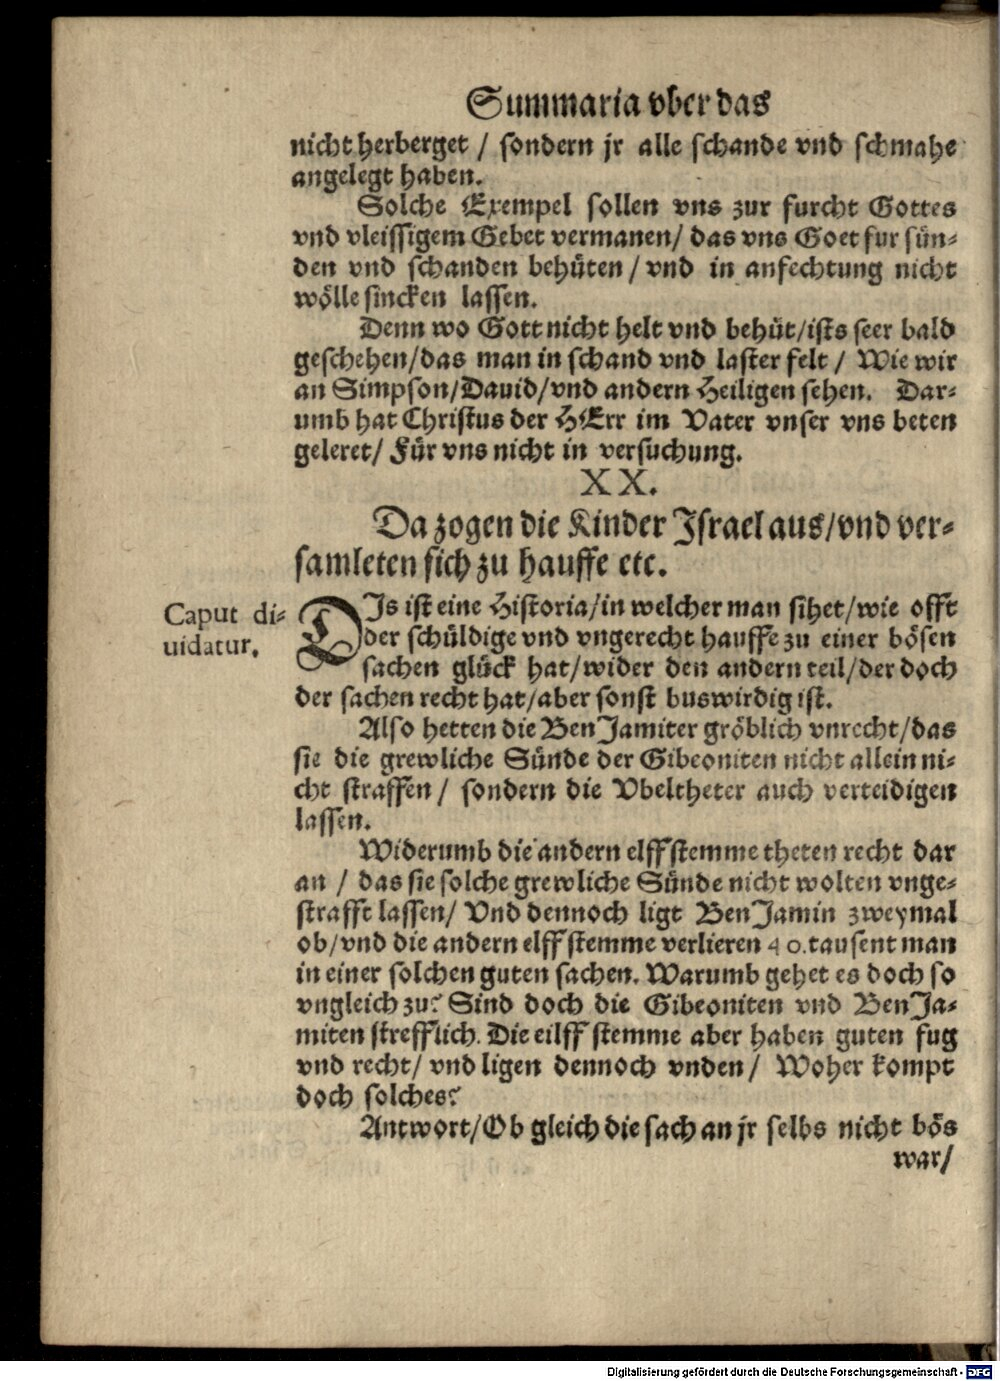 Summaria vber das
nicht herberget / sondern jr alle schande vnd schmahe
angelegt haben.
Solche Exempel sollen vns zur furcht Gottes
vnd vleissigem Gebet vermanen/ das vns Goet fur sün-
den vnd schanden behüten / vnd in anfechtung nicht
wölle sincken lassen.
Denn wo Gott nicht helt vnd behüt/ists seer bald
geschehen/das man in schand vnd laster felt / Wie wir
an Simpson/Dauid/vnd andern Heiligen sehen. Dar-
umb hat Christus der HErr im Vater vnser vns beten
geleret/ Für vns nicht in versuchung.
XX.
Da zogen die Kinder Israel aus/vnd ver-
samleten sich zu hauffe etc.
Caput di-
uidatur.
DIs ist eine Historia/in welcher man sihet/wie offt
der schüldige vnd vngerecht hauffe zu einer bösen
sachen glück hat/wider den andern teil/der doch
der sachen recht hat/aber sonst buswirdig ist.
Also hetten die BenJamiter gröblich vnrecht/das
sie die grewliche Sünde der Gibeoniten nicht allein ni-
cht straffen / sondern die Vbeltheter auch verteidigen
lassen.
Widerumb die andern elff stemme theten recht dar
an / das sie solche grewliche Sünde nicht wolten vnge-
strafft lassen/ Vnd dennoch ligt BenJamin zweymal
ob/vnd die andern elff stemme verlieren 40.tausent man
in einer solchen guten sachen. Warumb gehet es doch so
vngleich zu? Sind doch die Gibeoniten vnd BenJa-
miten strefflich. Die eilff stemme aber haben guten fug
vnd recht/ vnd ligen dennoch vnden / Woher kompt
doch solches?
Antwort/Ob gleich die sach an jr selbs nicht bös
war/
Digitalisierung gefördert durch die Deutsche Forschungsgemeinschaft - DFG